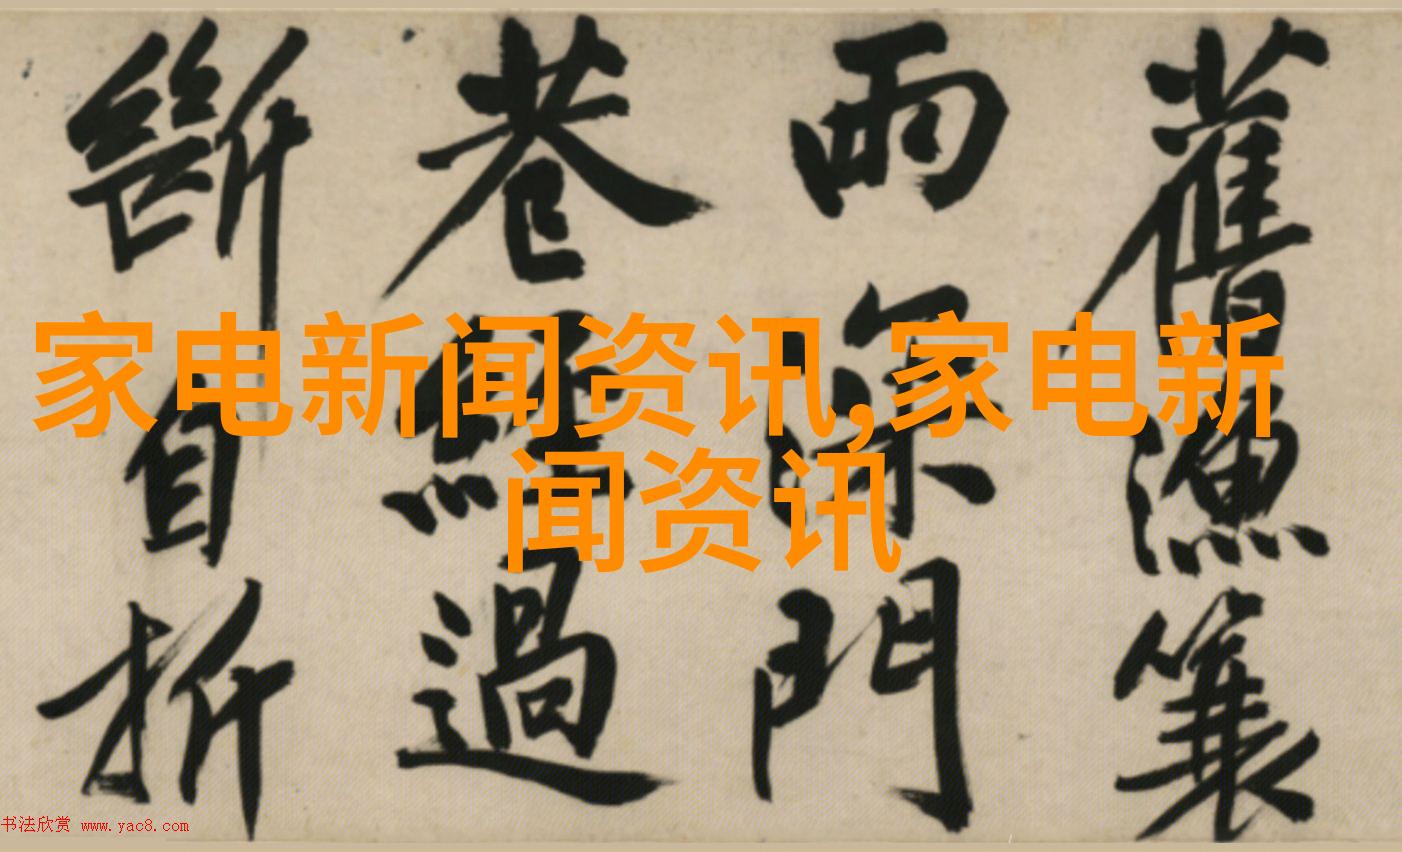 舊漁簑
雨深門
巷經過
斷自折
家电新闻资讯,家电新
闻资讯
书法欣赏 www.yac8.com